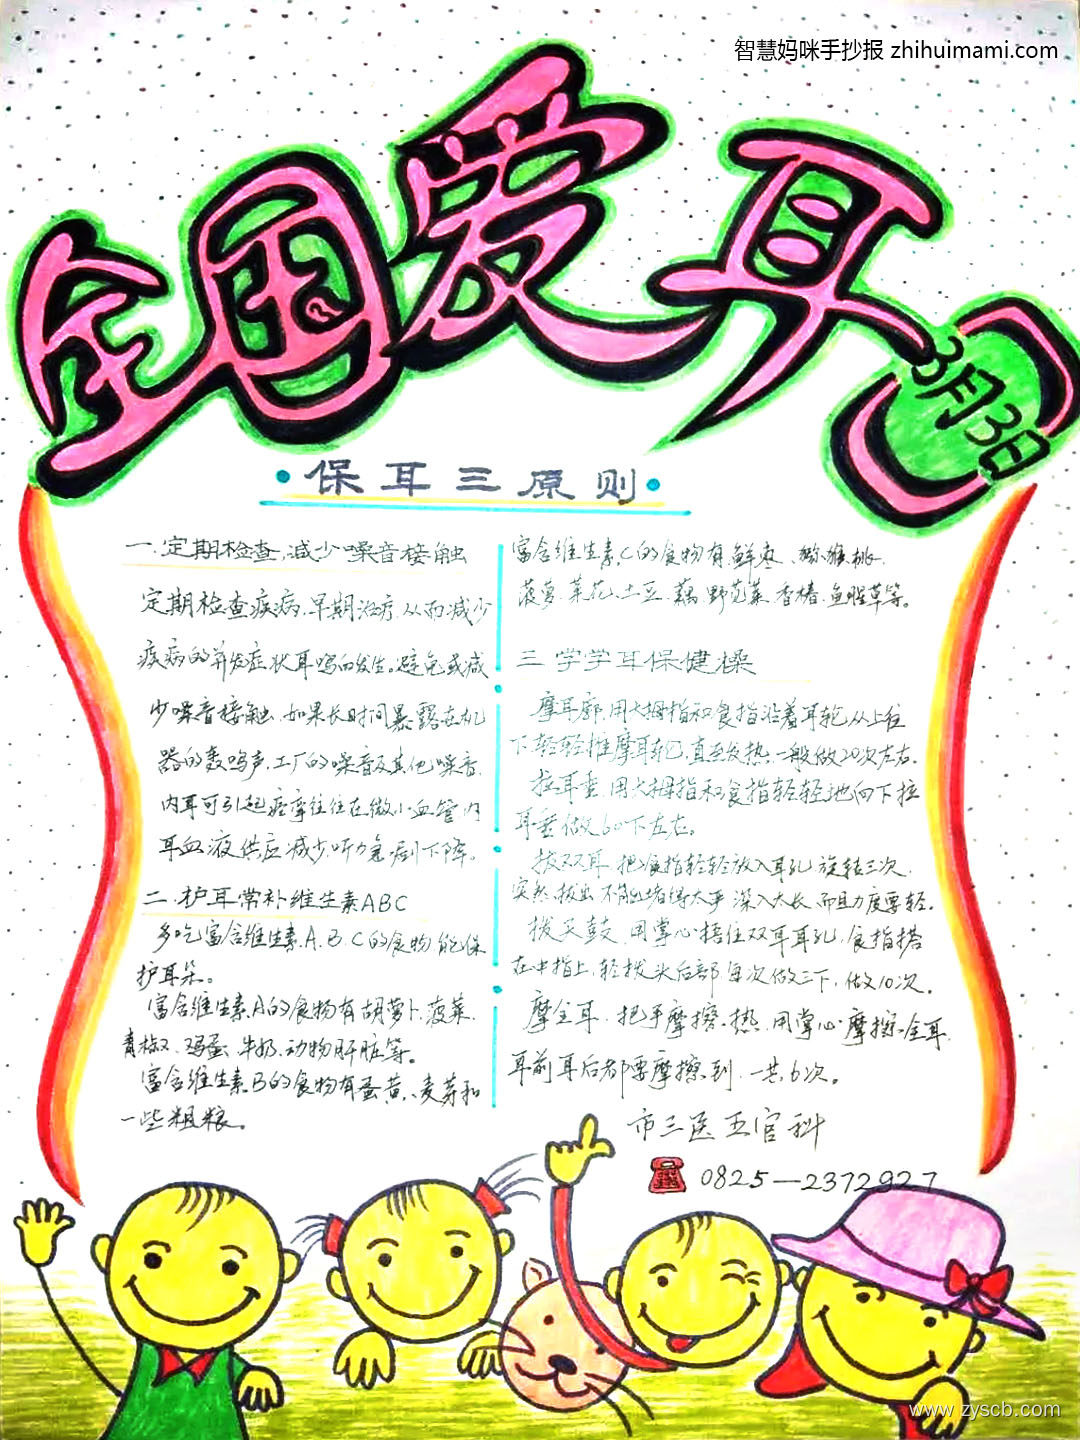 智慧妈咪手抄报 zhihuimami.com
全国爱耳
3月3日
保耳三原则
一.定期检查,减少噪音接触
定期检查疾病,早期治疗,从而减少
疾病的并发症状耳鸣的发生。避免或减
少噪音接触,如果长时间暴露在机
器的轰鸣声,工厂的噪音及其他噪音,
内耳可引起痉挛往往在微小血管内
耳血液供应减少,听力急剧下降。
二.护耳常补维生素ABC
多吃富含维生素A、B、C的食物,能保
护耳朵。
富含维生素A的食物有胡萝卜、菠菜、
青椒、鸡蛋、牛奶、动物肝脏等。
富含维生素B的食物有蛋黄、麦芽和
一些粗粮。
富含维生素C的食物有鲜枣、猕猴桃、
菠萝、菜花、土豆、藕、野苋菜、香椿、鱼腥草等。
三 学学耳保健操
摩耳廓,用大拇指和食指沿着耳轮从上往
下轻轻推摩耳轮,直至发热,一般做20次左右.
拉耳垂,用大拇指和食指轻轻地向下拉
耳垂做60下左右。
拔双耳,把食指轻轻放入耳孔,旋转三次,
突然拔出,不能堵得太严,深入太长,而且力度要轻.
拨天鼓,用掌心捂住双耳耳孔,食指搭
在中指上,轻拨头后部,每次做三下,做10次.
摩全耳,把手摩擦热,用掌心摩擦全耳,
耳前耳后都要摩擦到,一共6次。
市三医五官科
0825—2372927
www.zyscb.com